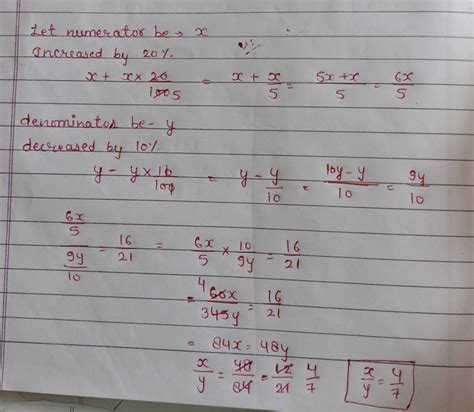 Let numerator be → x
Increased by 20%.
x + x × 20/100 5 = x + x/5 = 5x + x/5 = 6x/5
denominator be - y
decreased by 10%
y - y × 10/100 = y - y/10 = 10y - y/10 = 9y/10
6x/5 / 9y/10 = 16/21 = 6x/5 × 10/9y = 16/21
= 4 60x/3 45y = 16/21
= 84x = 48y
x/y = 48/84 = 12/21 4/7
x/y = 4/7